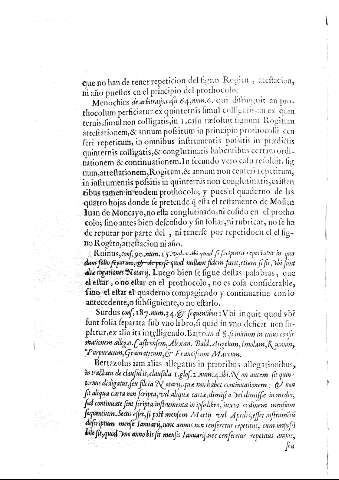 que no han de tener repeticion del signo Rogitu, atestacion,
ni año puestos en el principio del prothocolo.
Menochius de arbitrarijs casu 64. num. 6. que distinguit an pro-
thocolum perficiatur ex quinternis simul colligatis, an ex quin
ternis, simul non colligatis, in 1. casu resoluit signum Rogitum
attestationem, & annum possitum in principio prothocoli cen
seri repetitum, in omnibus instrumentis possitis in prædictis
quinternis colligatis, & conglutinatis habentibus certam ordi-
nationem & continuationem. In secundo vero casu resoluit, sig
num, attestationem, Rogitum, & annum non censeri repetitum,
in instrumentis possitis in quinternis non conglutinatis, existen
tibus tamen in eodem prothocolo, y pues el quaderno de las
quatro hojas donde se pretende q̃ esta el testamento de Mosen
Iuan de Moncayo, no esta conglutinado, ni cosido en el protho
colo, sino antes bien descosido y sin foliar, ni rubricar, no se ha
de reputar por parte del, ni tenerse por repetido en el el sig-
no Rogito, attestacion ni año.
Ruinus, cons. 90. num. ibi quod si scriptura reperiatur in qua
dam folio separato, & de per se quod nullam fidem facit, etiam si sit, vbi sunt
aliæ rogationes Notarij, Luego bien se sigue destas palabras, que
el estar, o no estar en el prothocolo, no es cosa considerable,
sino el estar el quaderno compaginado y continuarse con lo
antecedente, o subsiguiente, o no estarlo.
Surdus cons. 187. num. 24. & sequentibus: Vbi inquit quod vbi
sunt folia separata sub vno libro, si quid in vno deficit non su-
pletur, ex alio ita intelligendo. Bartolus
mationem allegat, Castrensem, Alexan. Bald. Aregium, Imolam,
Purpuratum, Grammaticum, & Franciscum Marcum.
Bertazolus tam alias allegatus in prioribus allegationibus,
in tractatu de clausulis, clausula 1. glos. 2. num. 4. ibi,
ternus desligatus, sen
sit aliqua carta non scripta, vel aliqua carta, dimissa
sed continuate sint scripta instrumenta in ipso libro, iuxta
sequentium. Secus esset, si post mensem Martij vel Aprilis, esset instrumentum
descriptum mense Ianuarij, nam annus non censeretur repetitus, cum impossi
bile sit, quod vno anno bis sit mensis Ianuarij, nec censeretur repetitus annus,
sed